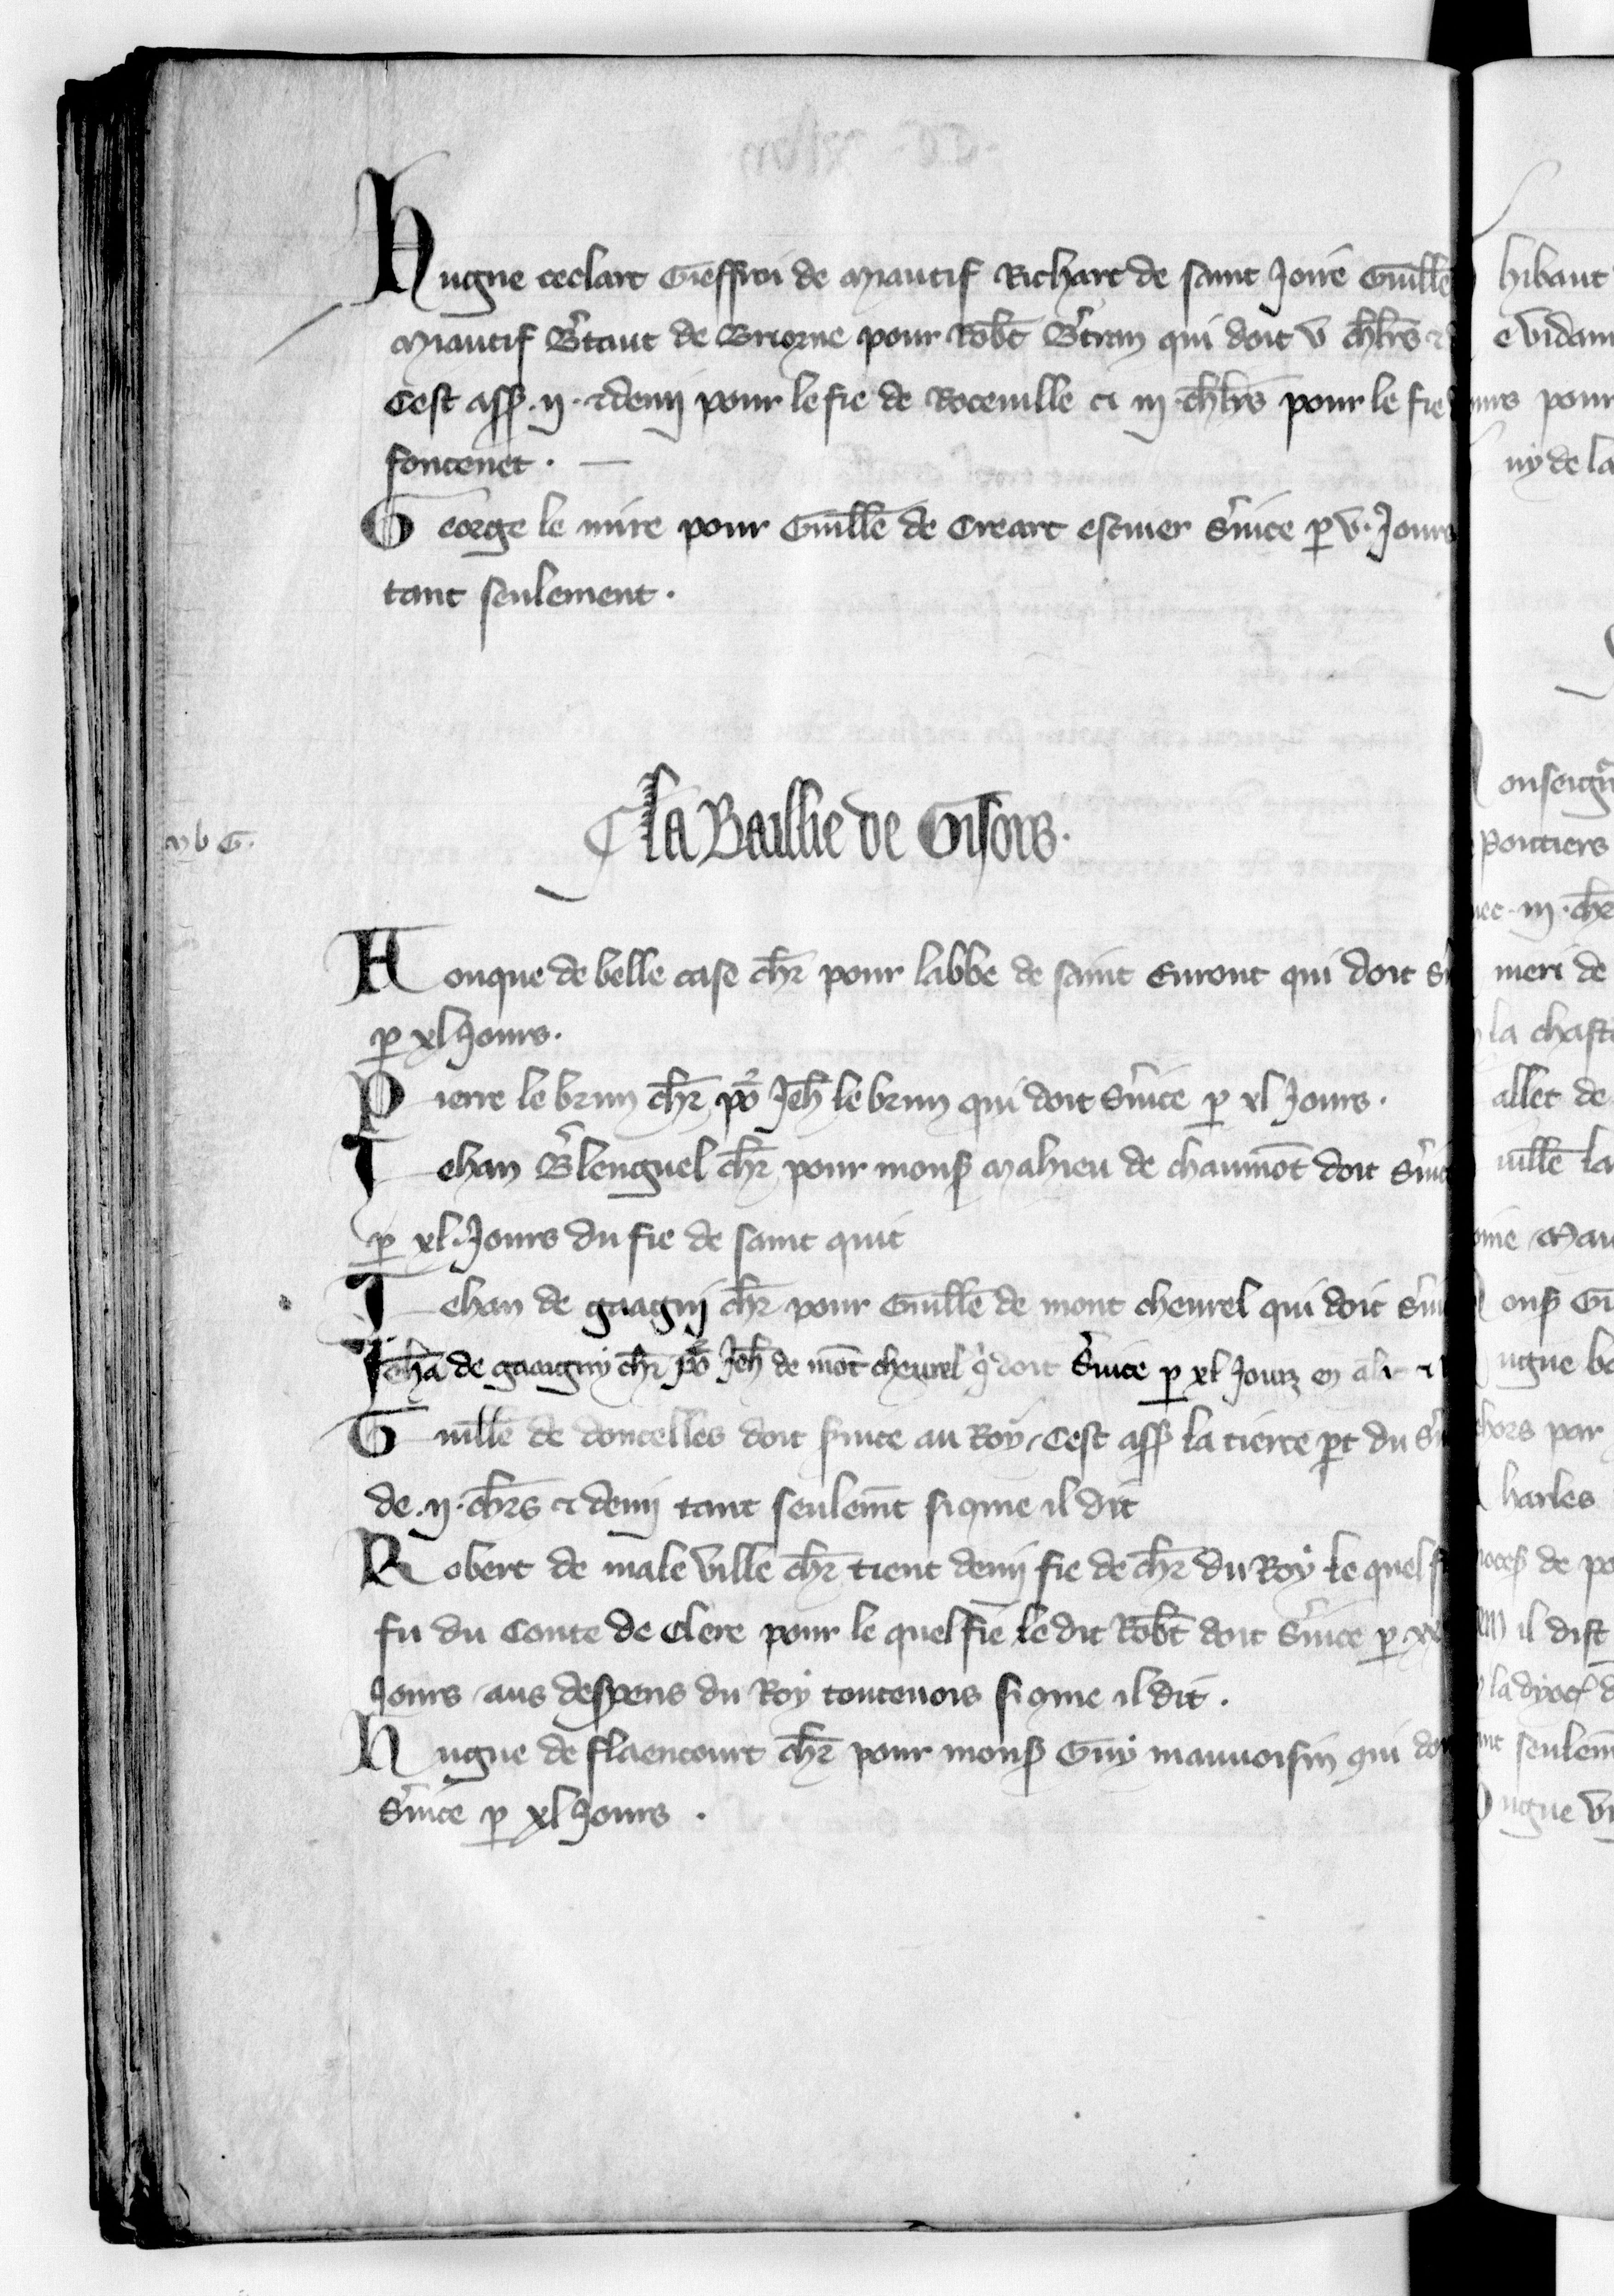 Hugue teclart Gieffroi de Mautif Richart de saint Joire Guill̄e
Mautif B'taut de Briorne pour Rob̄t B'tran qui doit v ch̄l̄rs &
Cest ass̄. ij. & demj pour le fie de Roceuille et iij ch̄l̄rs pour le fie
fontenet.
George le mire pour Guill̄e de Creart escuier s'uice p v. Jours
tant seulement.
La Baillie de Gisors.
Fouque de belle case ch̄r pour labbe de saint Euront qui doit s'
p xl Jours.
Pierre le brun ch̄r po' Jeh̄ le brun qui doit s'uice p xl Jours.
Jehan B'lenguel ch̄r pour mons̄ Mahieu de chaumōt doit s'uic
p xl Jours du fie de saint quit
Jehan de gaagnj ch̄r pour Guill̄e de mont cheurel qui doit s'ui
Jeh̄a de gaaigny ch̄r po' Jeh̄ de mōt cheurel q' doit s'uice p xl Jours en
Guill̄e de doucelles doit s'uice au Roy, Cest ass̄ la tierce p̄t du s'
de. ij. ch̄rs et demj tant seulem̄t si gme il dit
Robert de male ville ch̄r tient demj fie de ch̄r du Roy le quel f
fu du Conte de Clere pour le quel fie le dit Rob̄t doit s'uice p xx
Jours aus despens du Roy toutenois si gme il dit.
Hugue de flaencourt ch̄r pour mons̄ Guy mauuoisin qui do
s'uice p xl Jours.
hibaut
e vidam
urs pour
uy de la
onseign̄
poitiers
uec. iij. ch̄r
meri de
la chast
allet de
uill̄e la
ome Mau
ons̄ Gu
ugue be
hors par
harles
de po
il dist
seulem
ugue vi